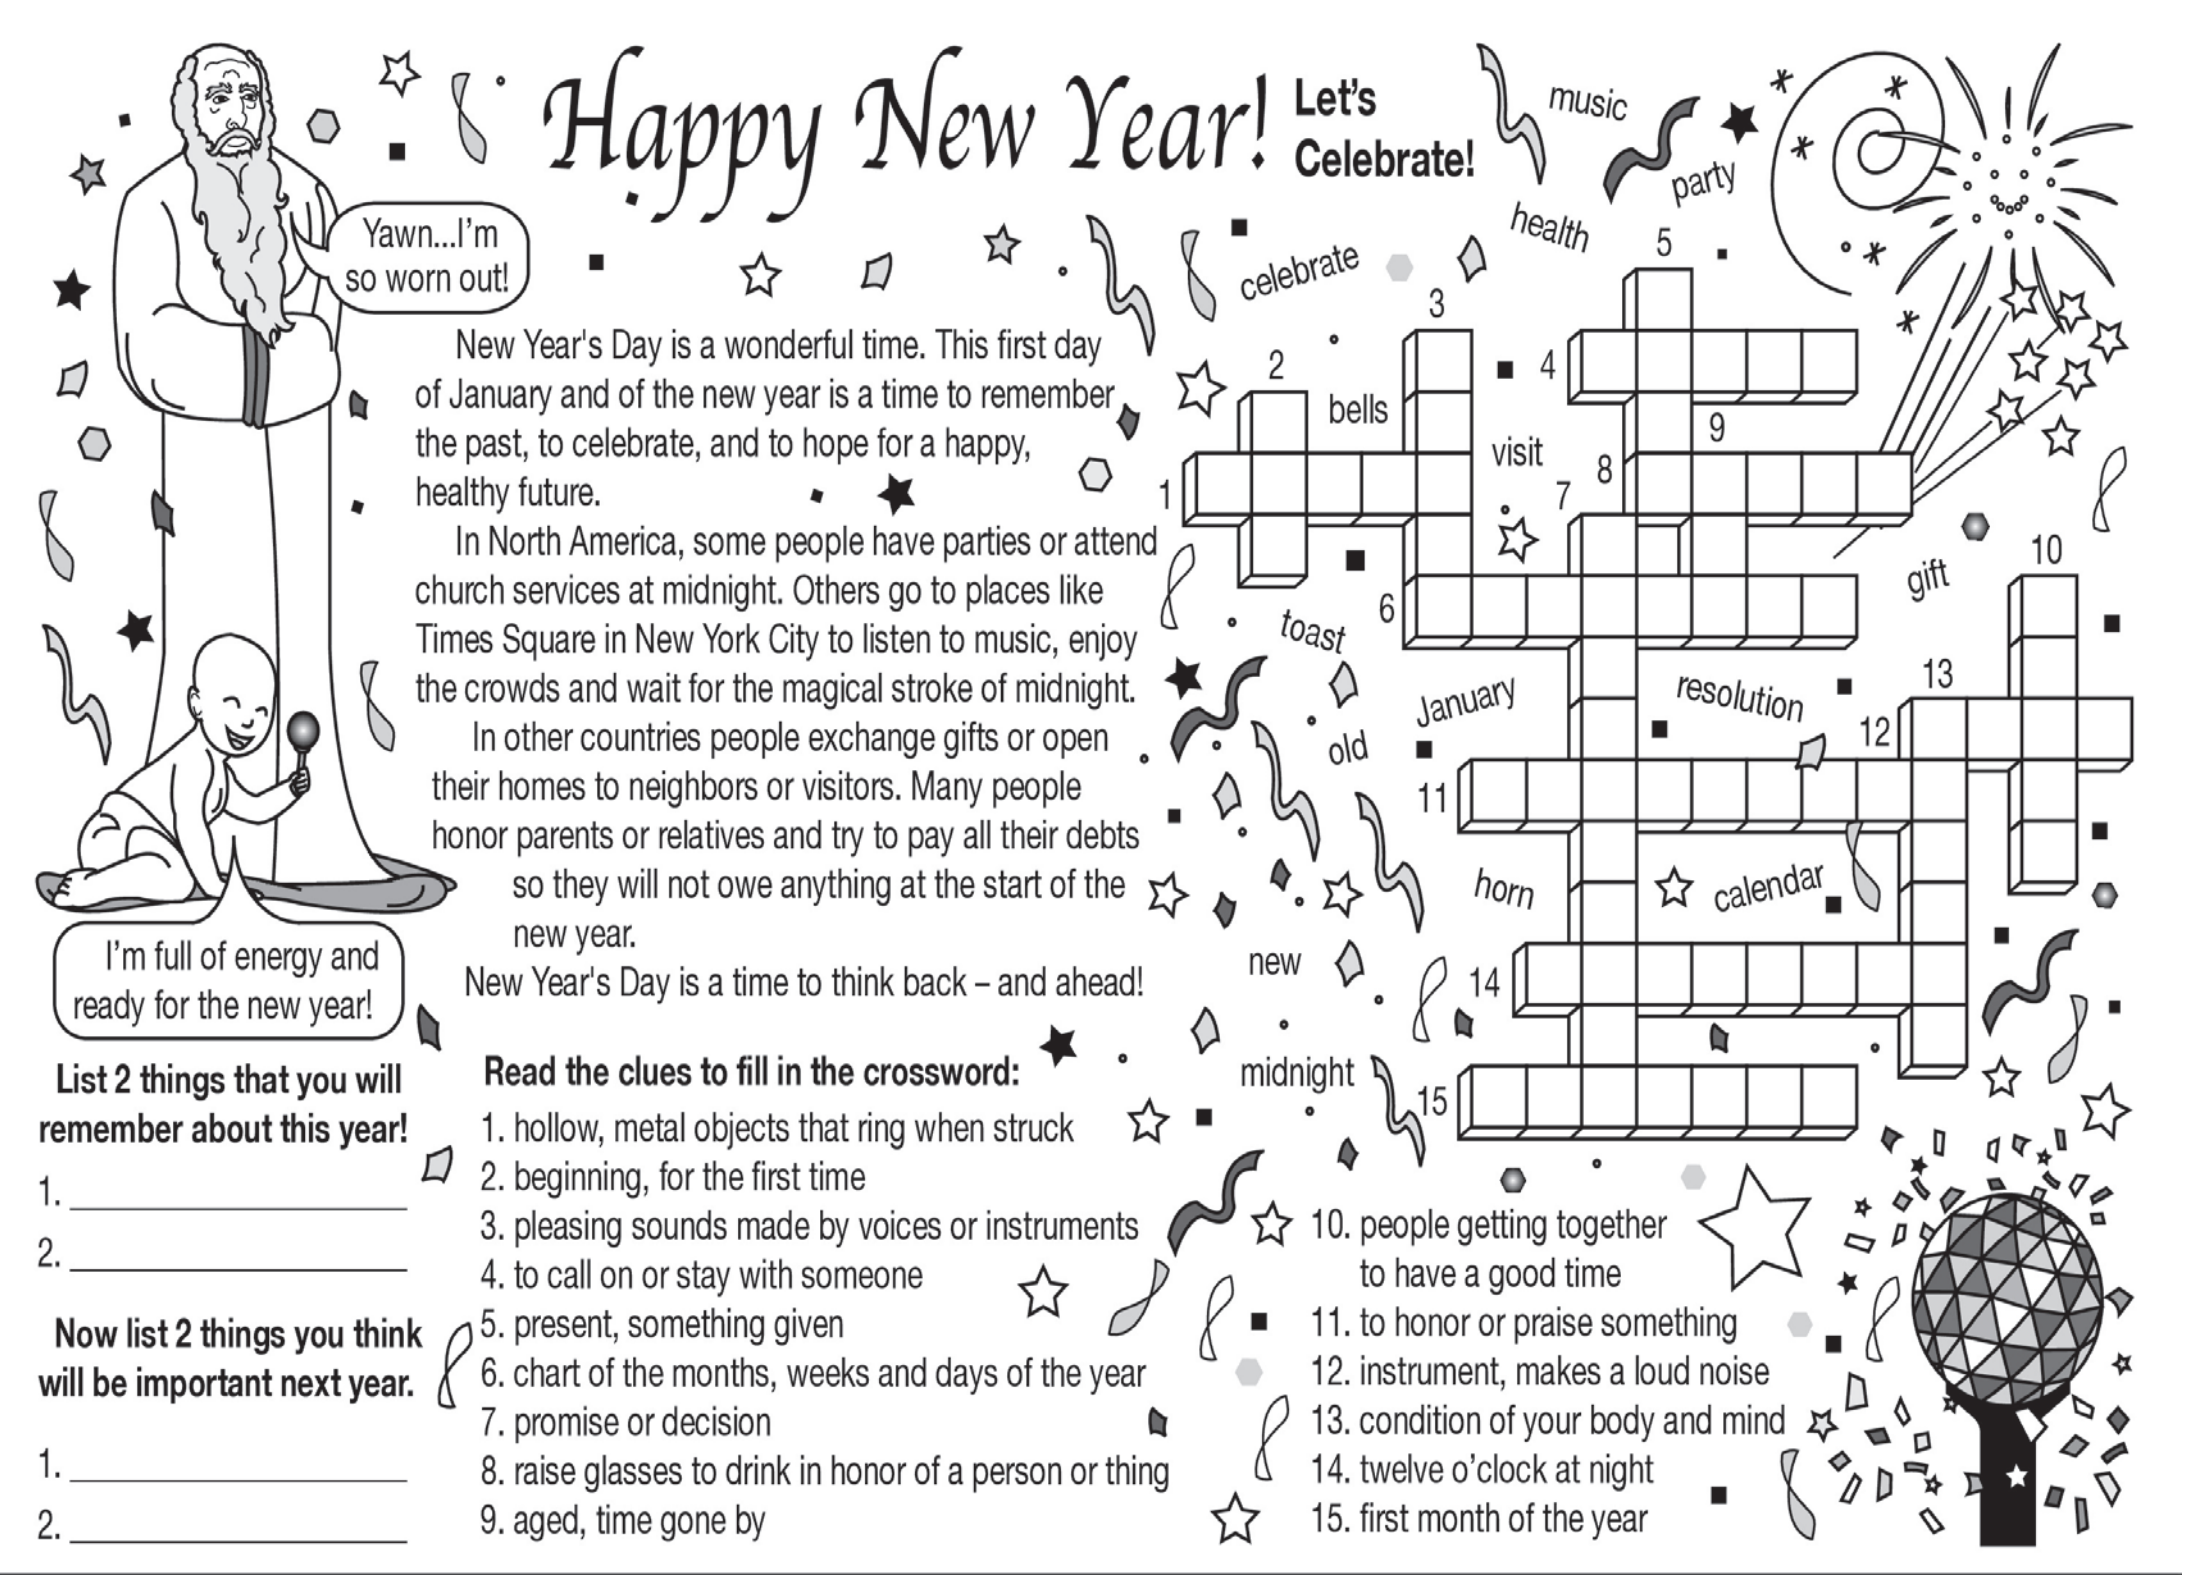 Happy New Year!
Let's
Celebrate!
Yawn...I'm
so worn out!
New Year's Day is a wonderful time. This first day
of January and of the new year is a time to remember
the past, to celebrate, and to hope for a happy,
healthy future.
In North America, some people have parties or attend
church services at midnight. Others go to places like
Times Square in New York City to listen to music, enjoy
the crowds and wait for the magical stroke of midnight.
In other countries people exchange gifts or open
their homes to neighbors or visitors. Many people
honor parents or relatives and try to pay all their debts
so they will not owe anything at the start of the
new year.
New Year's Day is a time to think back – and ahead!
I'm full of energy and
ready for the new year!
List 2 things that you will
remember about this year!
1.
2.
Now list 2 things you think
will be important next year.
1.
2.
Read the clues to fill in the crossword:
1. hollow, metal objects that ring when struck
2. beginning, for the first time
3. pleasing sounds made by voices or instruments
4. to call on or stay with someone
5. present, something given
6. chart of the months, weeks and days of the year
7. promise or decision
8. raise glasses to drink in honor of a person or thing
9. aged, time gone by
10. people getting together
to have a good time
11. to honor or praise something
12. instrument, makes a loud noise
13. condition of your body and mind
14. twelve o'clock at night
15. first month of the year
music
party
health
celebrate
5
3
2
bells
4
visit
9
8
7
1
10
gift
toast
6
January
resolution
13
12
old
11
horn
calendar
new
14
midnight
15